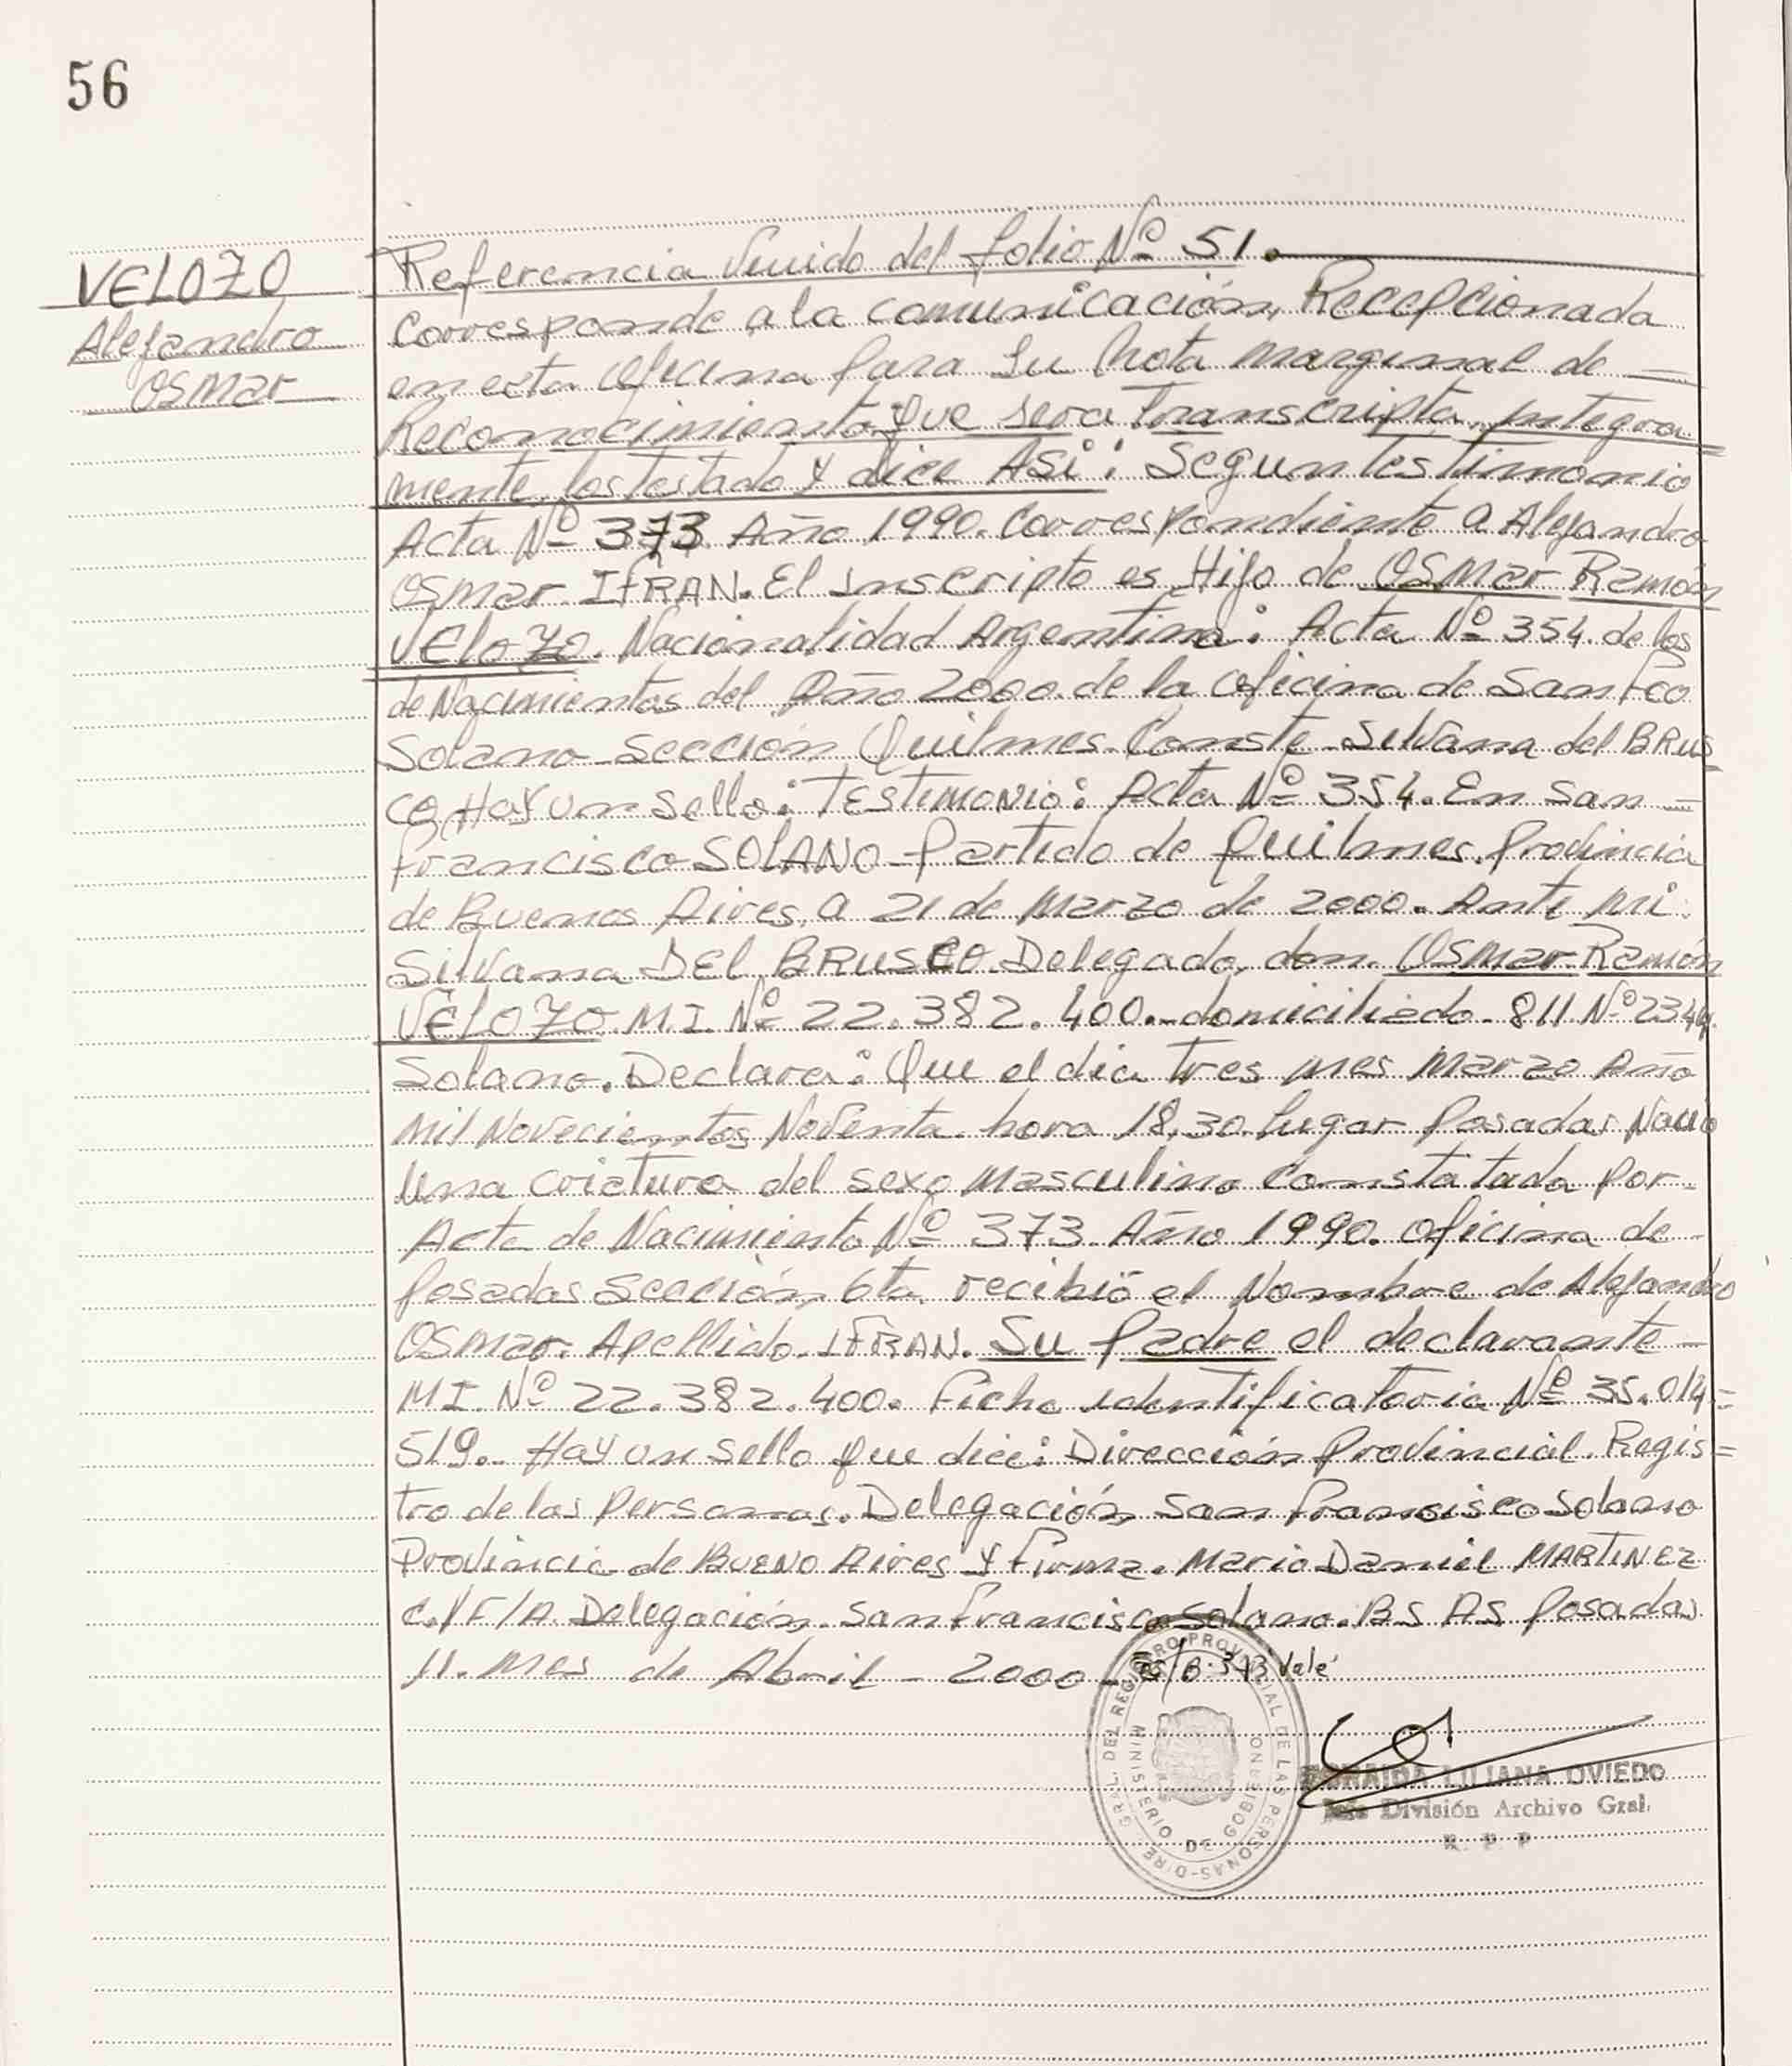 56
VELOZO
Alejandro
Osmar
Referencia Venido del folio Nº 51.
Corresponde a la comunicación, Recepcionada
en esta oficina para su Nota marginal de —
Reconocimiento que sera Transcripta integra
mente los testado y dice ASi: Segun testimonio
Acta Nº 373 Año 1990. Correspondiente a Alejandro
Osmar IFRAN. El inscripto es Hijo de OSMar Ramón
VELOZO. Nacionalidad Argentina: Acta Nº 354. de los
de Nacimientos del Año 2000. de la oficina de San Fco
Solano Sección Quilmes. Conste Silvana del BRUS
CO Hay un Sello: TESTIMONIO: Acta Nº 354. En San =
Francisco SOLANO Partido de Quilmes. Provincia
de Buenos Aires, a 21 de Marzo de 2000. Ante mi
Silvana DEL BRUSCO Delegado, don. OSMar Ramón
VELOZO M.I. Nº 22.382.400.- domiciliado 811 Nº 2344
Solano. Declara: Que el dia Tres mes Marzo Año
Mil Novecientos Noventa hora 18,30 lugar Posadas Nacio
Una criatura del sexo Masculino Constatada por-
Acta de Nacimiento Nº 373 Año 1990. oficina de -
Posadas Sección 6ta recibió el Nombre de Alejandro
OSMar. Apellido IFRAN. Su Padre el declarante —
MI. Nº 22.382.400. Ficha identificatoria Nº 35.014=
519.- Hay un Sello que dice: Dirección Provincial. Regis=
tro de las Personas. Delegación San Francisco Solano
Provincia de BUENO Aires Y Firma. Mario Daniel MARTINEZ
C./F/A. Delegación San Francisco Solano. BS AS Posadas
11. Mes de Abril - 2000 - 373 Vale
GRAL. DEL REGISTRO PROVINCIAL DE LAS PERSONAS-DIRE
MINISTERIO DE GOBIERNO
LILIANA OVIEDO
Jefe División Archivo Gral.
R. P. P